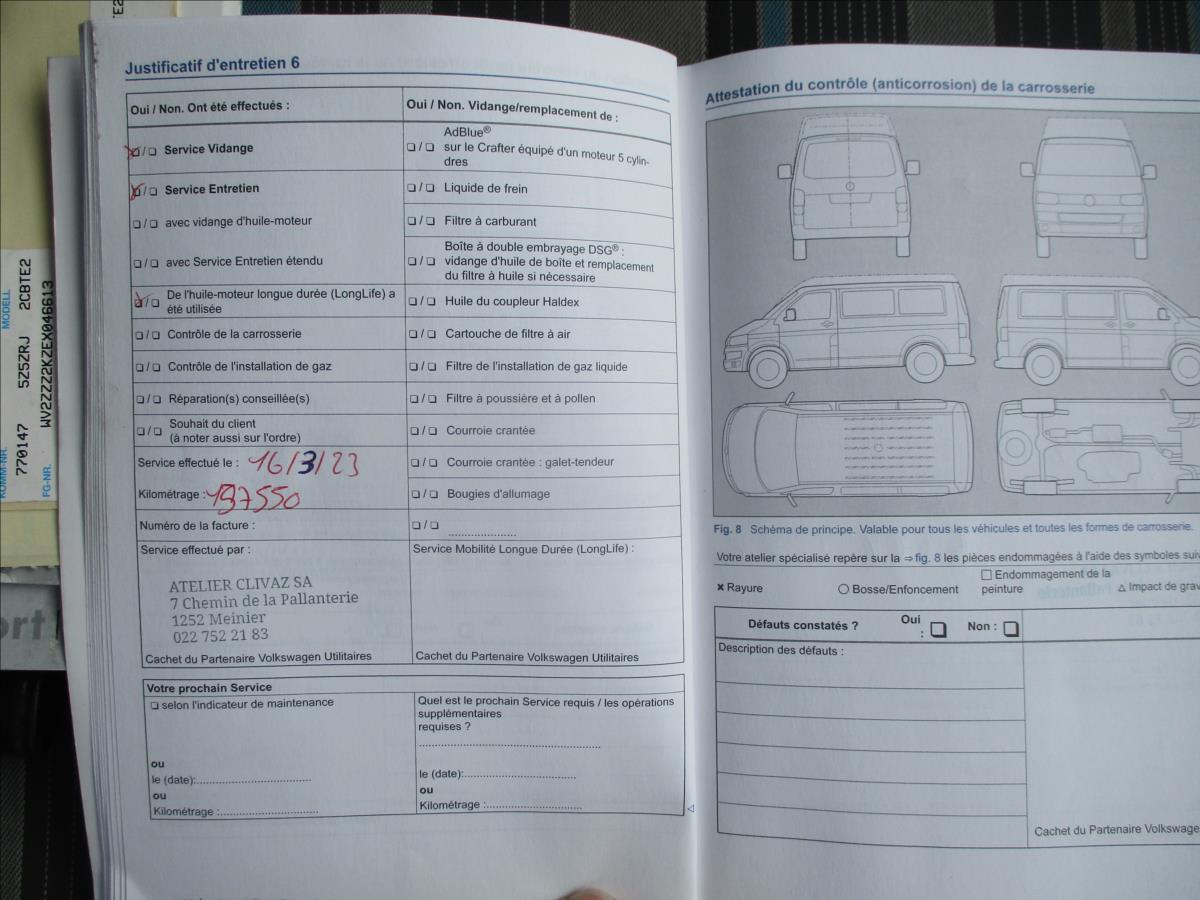 Justificatif d'entretien 6
Oui / Non. Ont été effectués :
❑/❑ Service Vidange
❑/❑ Service Entretien
❑/❑ avec vidange d'huile-moteur
❑/❑ avec Service Entretien étendu
❑/❑ De l'huile-moteur longue durée (LongLife) a
été utilisée
❑/❑ Contrôle de la carrosserie
❑/❑ Contrôle de l'installation de gaz
❑/❑ Réparation(s) conseillée(s)
❑/❑ Souhait du client
(à noter aussi sur l'ordre)
Service effectué le : 16/3/23
Kilométrage : 197550
Numéro de la facture :
Service effectué par :
ATELIER CLIVAZ SA
7 Chemin de la Pallanterie
1252 Meinier
022 752 21 83
Cachet du Partenaire Volkswagen Utilitaires
Oui / Non. Vidange/remplacement de :
AdBlue®
❑/❑ sur le Crafter équipé d'un moteur 5 cylin-
dres
❑/❑ Liquide de frein
❑/❑ Filtre à carburant
Boîte à double embrayage DSG® :
❑/❑ vidange d'huile de boîte et remplacement
du filtre à huile si nécessaire
❑/❑ Huile du coupleur Haldex
❑/❑ Cartouche de filtre à air
❑/❑ Filtre de l'installation de gaz liquide
❑/❑ Filtre à poussière et à pollen
❑/❑ Courroie crantée
❑/❑ Courroie crantée : galet-tendeur
❑/❑ Bougies d'allumage
❑/❑ ......................
Service Mobilité Longue Durée (LongLife) :
Cachet du Partenaire Volkswagen Utilitaires
Votre prochain Service
❑ selon l'indicateur de maintenance
ou
le (date):..................................
ou
Kilométrage :.............................
Quel est le prochain Service requis / les opérations
supplémentaires
requises ?
......................................................
le (date):.................................
ou
Kilométrage :............................
Attestation du contrôle (anticorrosion) de la carrosserie
Fig. 8 Schéma de principe. Valable pour tous les véhicules et toutes les formes de carrosserie.
Votre atelier spécialisé repère sur la ⇒ fig. 8 les pièces endommagées à l'aide des symboles suiv
× Rayure
○ Bosse/Enfoncement
□ Endommagement de la
peinture
△ Impact de grav
Défauts constatés ?
Oui
: ❑
Non : ❑
Description des défauts :
Cachet du Partenaire Volkswage
KOMM-NR.
770147
MODELL
5Z5ZRJ 2CBTE2
FG-NR.
WV2ZZZ2KZEX046613
ort